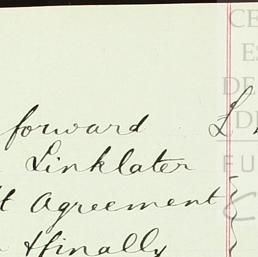 CE
ES
DE
forward £
Linklater
FU
Agreement
finally